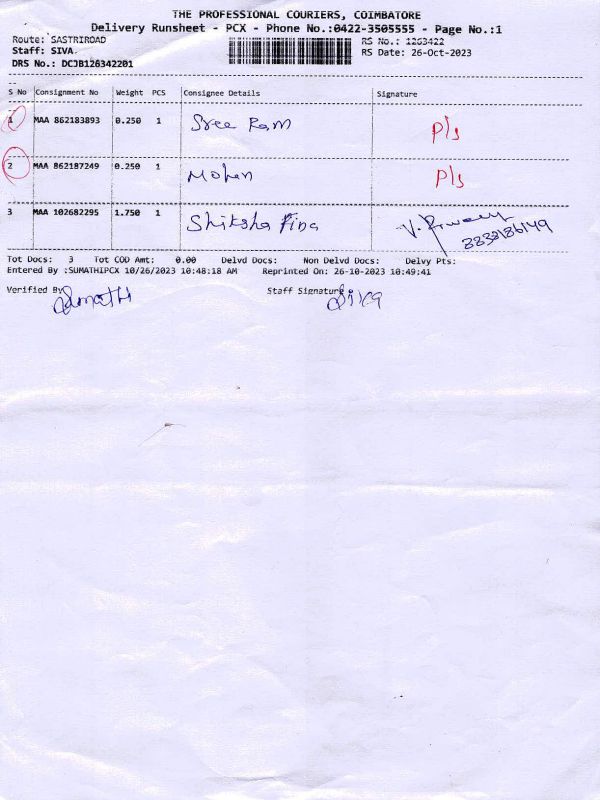 THE PROFESSIONAL COURIERS, COIMBATORE
Delivery Runsheet - PCX - Phone No.:0422-3505555 - Page No.:1
Route: SASTRIROAD RS No.: 1263422
Staff: SIVA RS Date: 26-Oct-2023
DRS No.: DCJB126342201
S No Consignment No Weight PCS Consignee Details Signature
1 MAA 862183893 0.250 1 Sree Ram P/s
2 MAA 862187249 0.250 1 Mohan P/s
3 MAA 102682295 1.750 1 Shiksha Fina
Tot Docs: 3 Tot COD Amt: 0.00 Delvd Docs: Non Delvd Docs: Delvy Pts:
Entered By :SUMATHIPCX 10/26/2023 10:48:18 AM Reprinted On: 26-10-2023 10:49:41
Verified By Staff Signature
Sumathi Siva